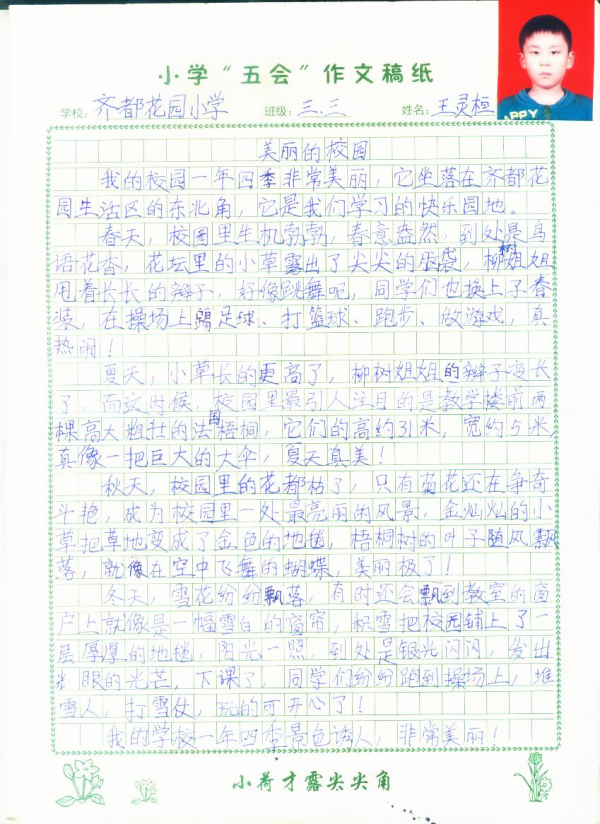 小学“五会”作文稿纸
学校：齐都花园小学 班级：三.三 姓名：王灵桓
APPY
美丽的校园
我的校园一年四季非常美丽，它坐落在齐都花
园生活区的东北角，它是我们学习的快乐园地。
春天，校园里生机勃勃，春意盎然，到处是鸟
语花香，花坛里的小草露出了尖尖的脑袋，柳树姐姐
甩着长长的辫子，好像跳舞呢，同学们也换上了春
装，在操场上踢足球、打篮球、跑步、做游戏，真
热闹！
夏天，小草长的更高了，柳树姐姐的辫子变长
了，而这时候，校园里最引人注目的是教学楼前两
棵高大粗壮的法国梧桐，它们的高约31米，宽约5米，
真像一把巨大的大伞，夏天真美！
秋天，校园里的花都枯了，只有菊花还在争奇
斗艳，成为校园里一处最亮丽的风景，金灿灿的小
草把草地变成了金色的地毯，梧桐树的叶子随风飘
落，就像在空中飞舞的蝴蝶，美丽极了！
冬天，雪花纷纷飘落，有时还会飘到教室的窗
户上就像是一幅雪白的窗帘，积雪把校园铺上了一
层厚厚的地毯，阳光一照，到处是银光闪闪，发出
眼的光芒，下课了，同学们纷纷跑到操场上，堆
雪人，打雪仗，玩的可开心了！
我的学校一年四季景色诱人，非常美丽！
小荷才露尖尖角